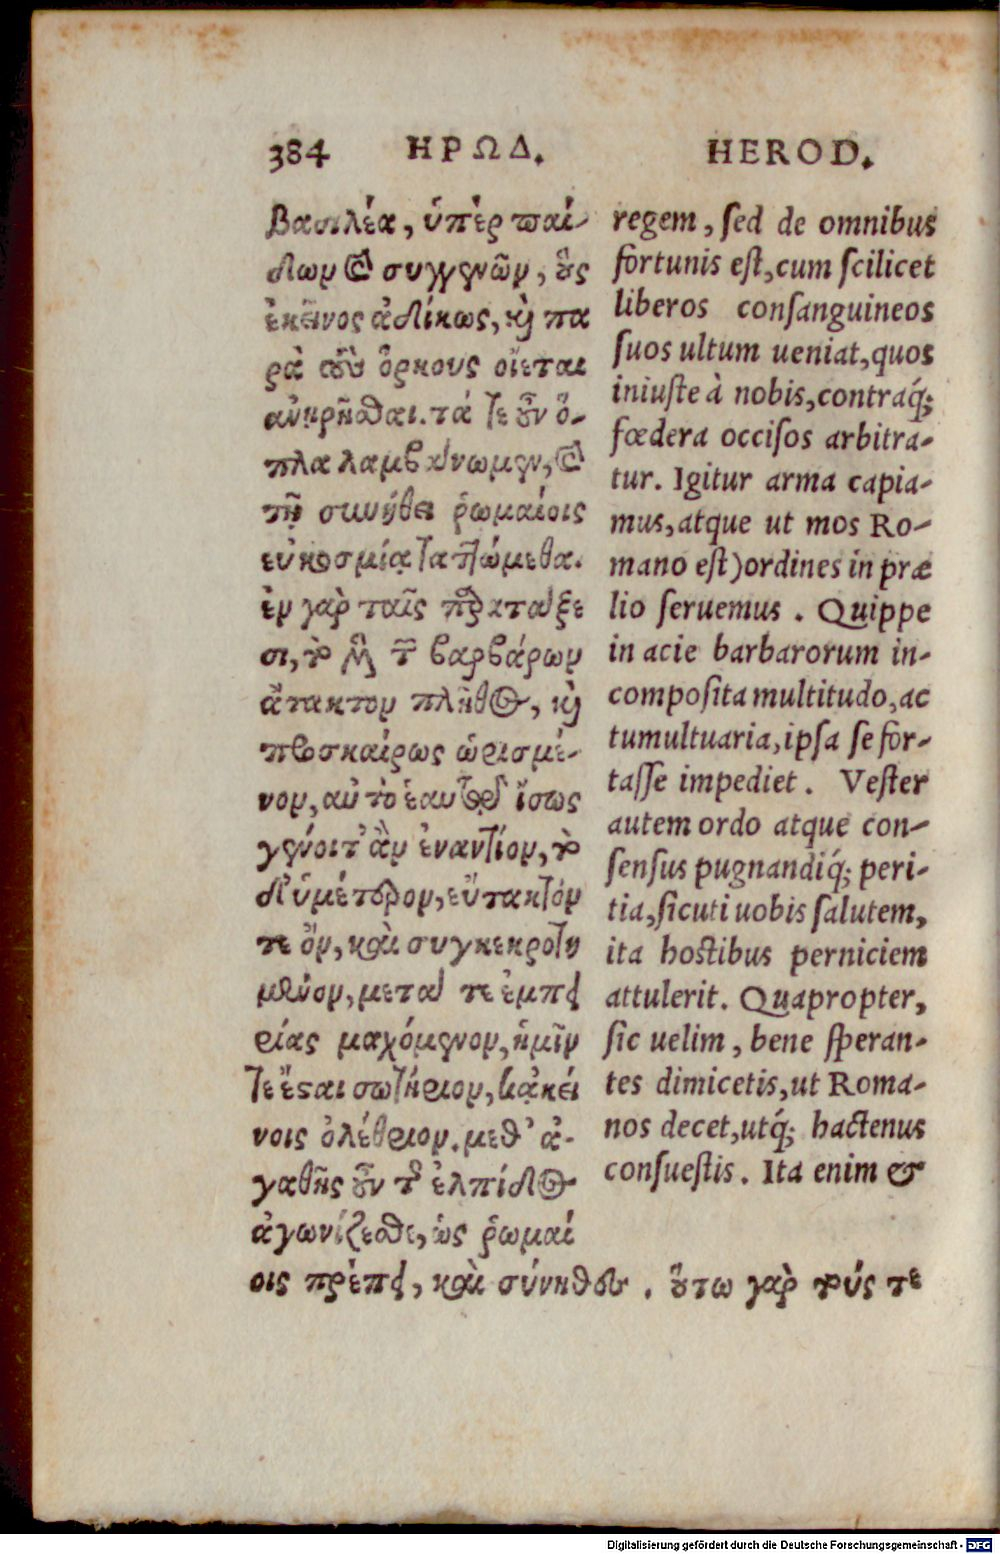 384 ΗΡΩΔ. HEROD.
βασιλέα, ὑπὲρ παί-
δων καὶ συγγενῶν, οὓς
ἐκεῖνος ἀδίκως, καὶ πα
ρὰ τοὺς ὅρκους οἴεται
ἀνῃρῆσθαι. τά τε οὖν ὅ-
πλα λαμβάνωμεν, καὶ
τῇ συνήθει ῥωμαίοις
εὐκοσμίᾳ ταττώμεθα.
ἐν γὰρ ταῖς παρατάξε
σι, τὸ μὲν τῶν βαρβάρων
ἄτακτον πλῆθος, καὶ
προσκαίρως ὡρισμέ-
νον, αὐτὸ ἑαυτῷ ἴσως
γένοιτ᾽ ἂν ἐναντίον, τὸ
δ᾽ ὑμέτερον, εὔτακτόν
τε ὂν, καὶ συγκεκροτη
μένον, μετά τε ἐμπει
ρίας μαχόμενον, ἡμῖν
τε ἔσται σωτήριον, κἀκεί
νοις ὀλέθριον. μεθ᾽ ἀ-
γαθῆς οὖν τῆς ἐλπίδος
ἀγωνίζεσθε, ὡς ῥωμαί
οις πρέπει, καὶ σύνηθες. οὕτω γὰρ τούς τε
regem, sed de omnibus
fortunis est, cum scilicet
liberos consanguineos
suos ultum ueniat, quos
iniuste à nobis, contraq́;
fœdera occisos arbitra-
tur. Igitur arma capia-
mus, atque ut mos Ro-
mano est) ordines in præ
lio seruemus. Quippe
in acie barbarorum in-
composita multitudo, ac
tumultuaria, ipsa se for-
tasse impediet. Vester
autem ordo atque con-
sensus pugnandiq́; peri-
tia, sicuti uobis salutem,
ita hostibus perniciem
attulerit. Quapropter,
sic uelim, bene speran-
tes dimicetis, ut Roma-
nos decet, utq́; hactenus
consuestis. Ita enim &
Digitalisierung gefördert durch die Deutsche Forschungsgemeinschaft - DFG